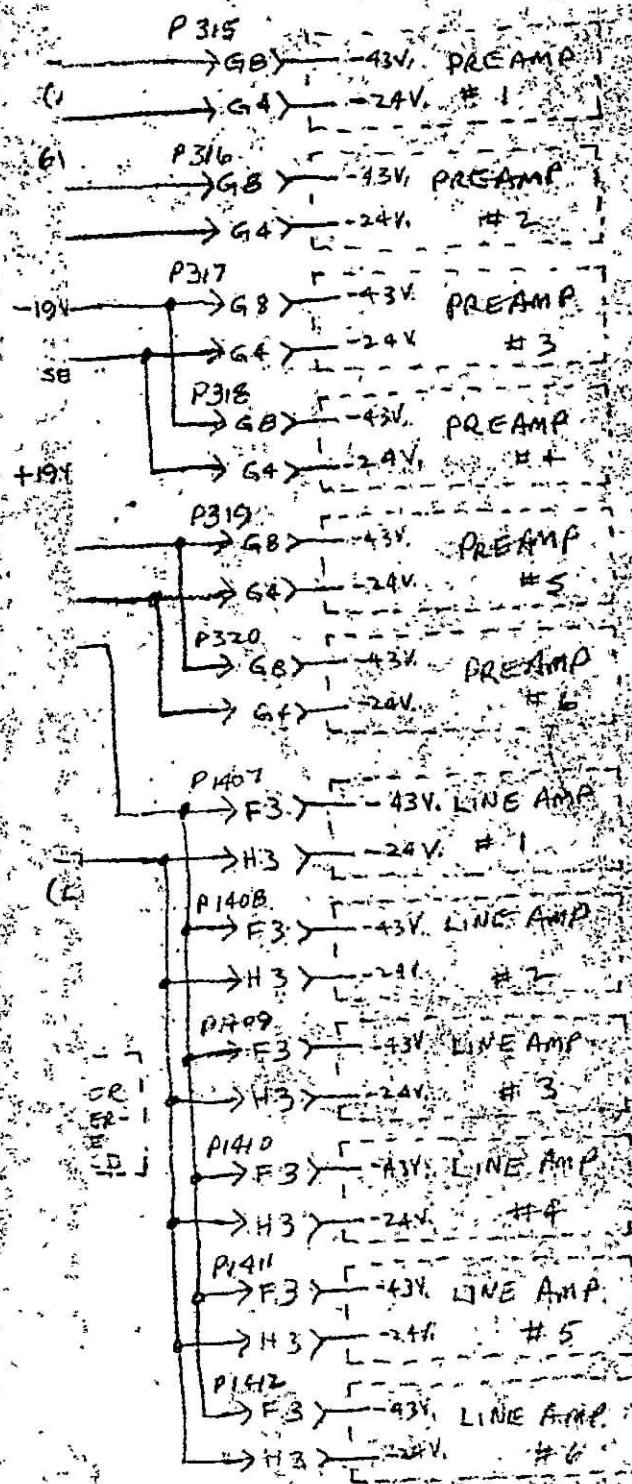 P315
G8 -43V. PREAMP
(1 G4 -24V. # 1
61 P316
G8 -43V. PREAMP
G4 -24V. # 2
P317
-19V G8 -43V. PREAMP
G4 -24V # 3
SB
P318
G8 -43V. PREAMP
+19V G4 -24V. # 4
P319
G8 -43V. PREAMP
G4 -24V. # 5
P320
G8 -43V. PREAMP
G4 -24V. # 6
P1407
F3 -43V. LINE AMP
H3 -24V. # 1
P1408
F3 -43V. LINE AMP
H3 -24V. # 2
P1409
F3 -43V LINE AMP
H3 -24V. # 3
P1410
F3 -43V. LINE AMP
H3 -24V. # 4
P1411
F3 -43V. LINE AMP.
H3 -24V. # 5
P1412
F3 -43V. LINE AMP.
H3 -24V. # 6